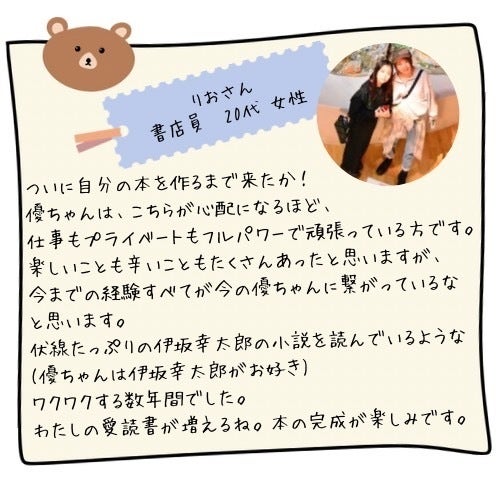 りおさん
書店員 20代 女性
ついに自分の本を作るまで来たか！
優ちゃんは、こちらが心配になるほど、
仕事もプライベートもフルパワーで頑張っている方です。
楽しいことも辛いこともたくさんあったと思いますが、
今までの経験すべてが今の優ちゃんに繋がっているな
と思います。
伏線たっぷりの伊坂幸太郎の小説を読んでいるような
(優ちゃんは伊坂幸太郎がお好き)
ワクワクする数年間でした。
わたしの愛読書が増えるね。本の完成が楽しみです。